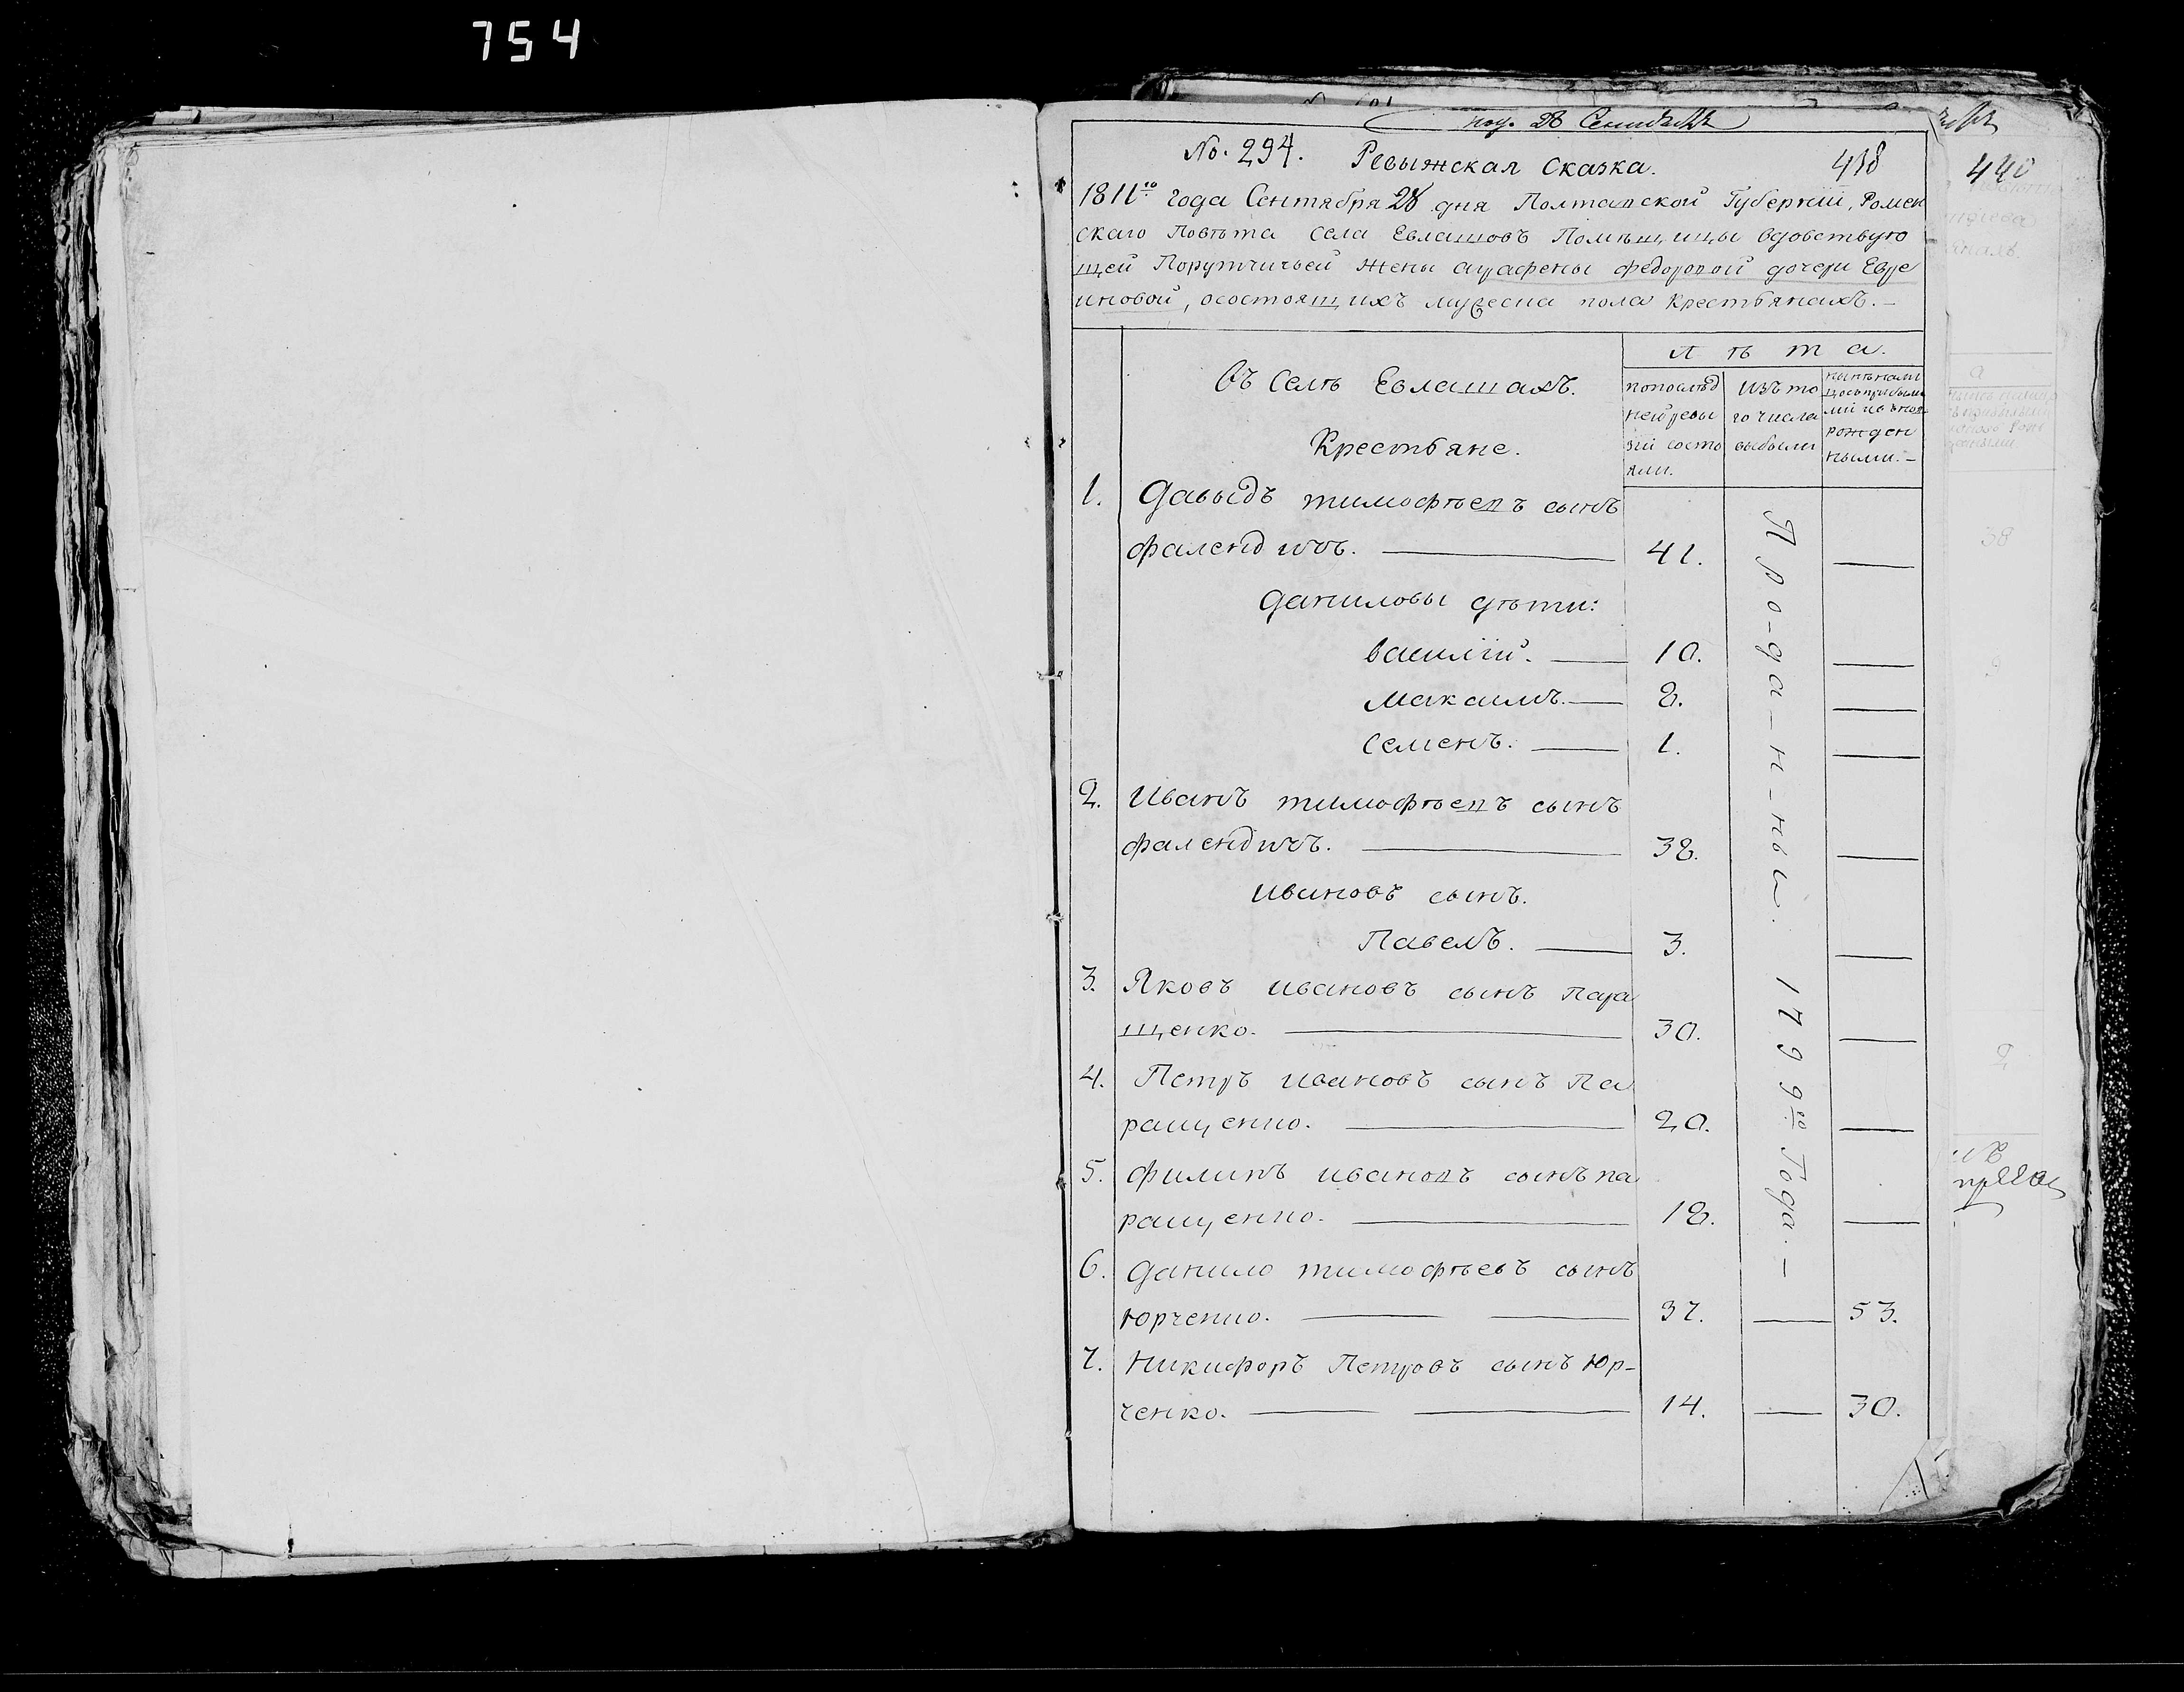 754
под. 28 Сентября
No. 294. Ревыжская Сказка. 418
1811го года Сентября 28 дня Полтавской Губернїи, Ромен
скаго Повѣта села Евлашовъ Помѣщицы вдовствую
щей Порутчичьей жены аграфены федоровой дочери Евре
иновой, осостоящихъ мужеска пола крестьянахъ.-
лѣта.
Въ Селѣ Евлашахъ.
Крестьяне.
попослѣд
ней ревы
зїи состо
яли.
изъ то
го числа
выбыли
рожден
ными.-
1. Давыдъ тимофѣевъ сынъ
фалендичъ. — 41. —
Даниловы дѣти:
василїй. — 10. —
максимъ. — 8. —
семенъ. — 1. —
2. Иванъ тимофѣевъ сынъ
фалендичъ. — 38. —
ивановъ сынъ.
Павелъ. — 3. —
3. Яковъ ивановъ сынъ пара
щенко. — 30. —
4. Петръ ивановъ сынъ па
ращенко. — 20. —
5. филипъ ивановъ сынъ па
ращенко. — 18. —
Про-да-н-ны. 1799го Года.-
6. Данило тимофѣевъ сынъ
юрченко. — 37. — 53.
7. Никифоръ Петровъ сынъ Юр-
ченко. — 14. — 30.
440
38